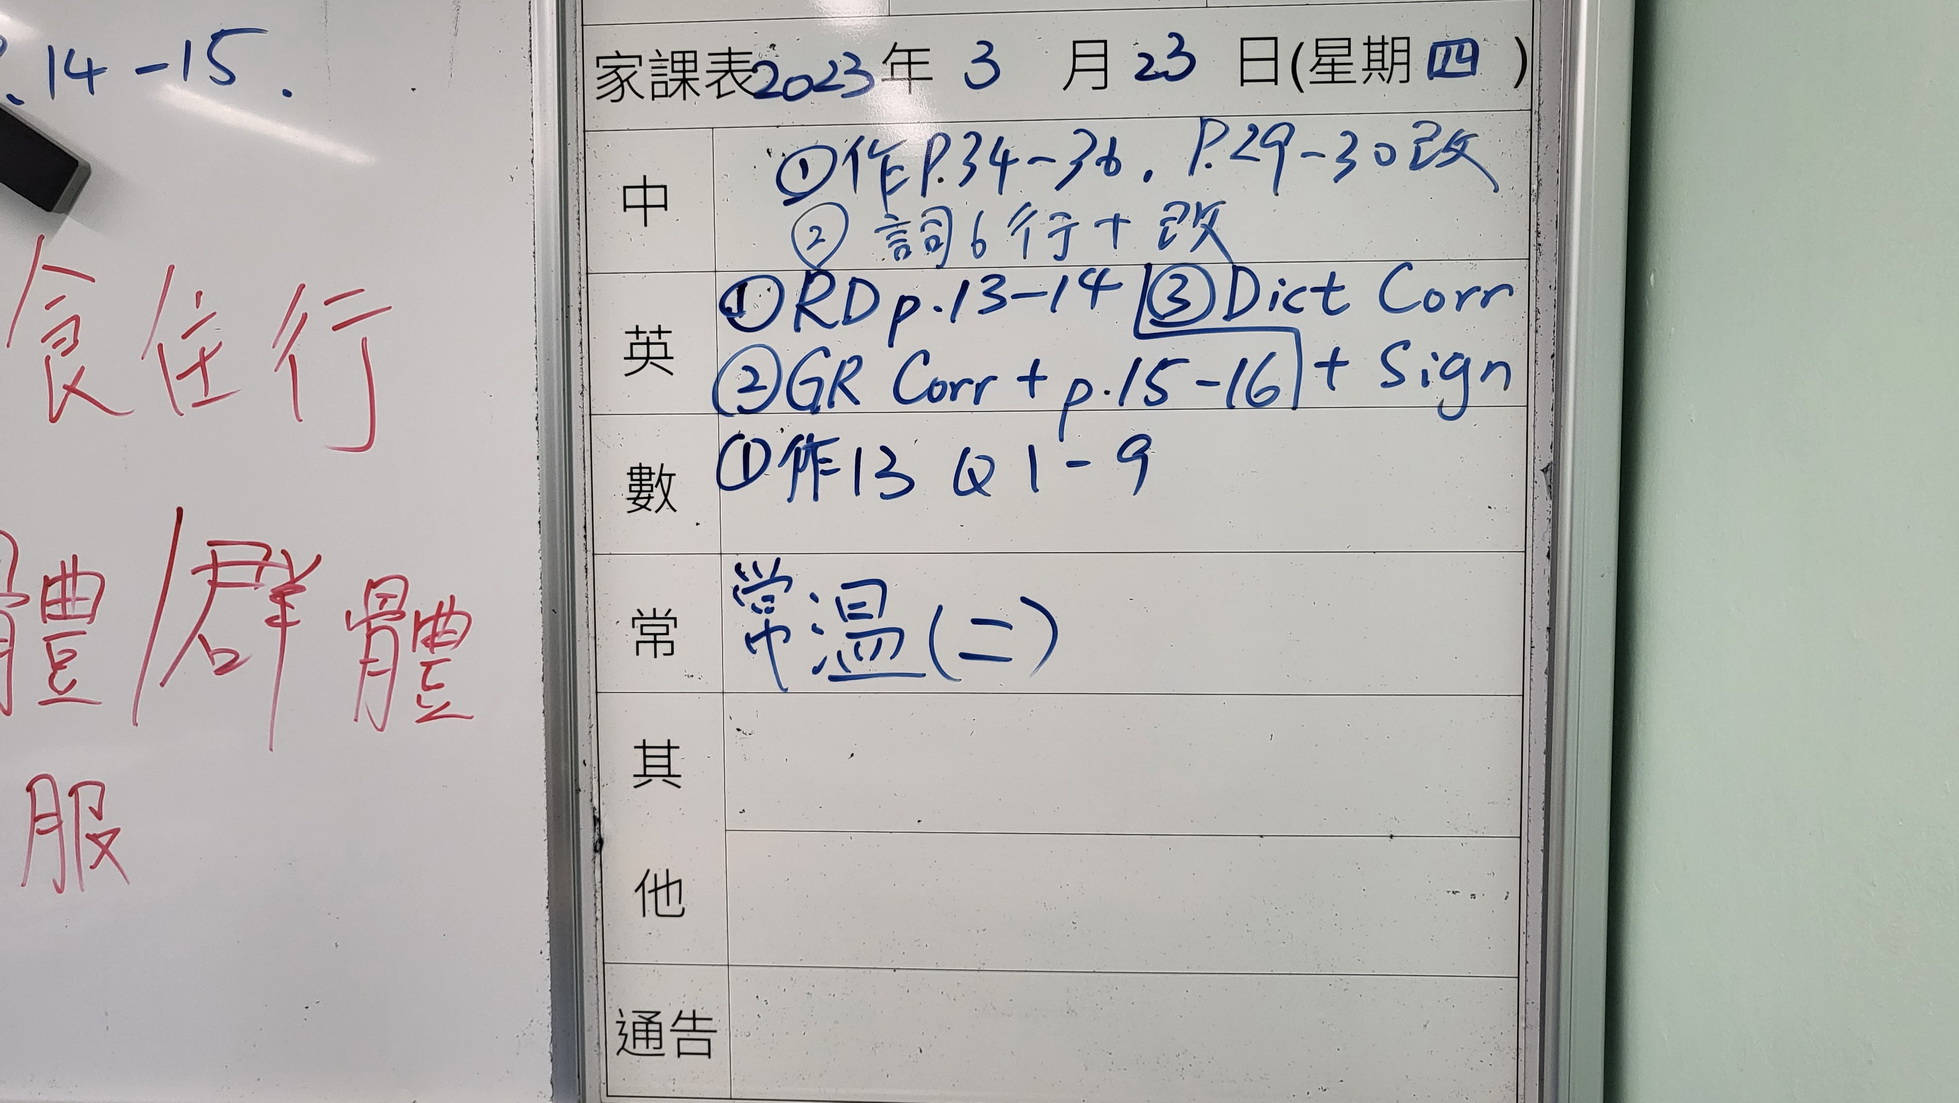 .14-15.
食住行
體/群體
服
家課表2023年 3 月 23 日(星期四)
中
①作P.34-36. P.29-30改
②詞6行+改
英
①RD p.13-14 ③Dict Corr
②GR Corr + p.15-16 + Sign
數
①作13 Q1-9
常
常温(二)
其
他
通告